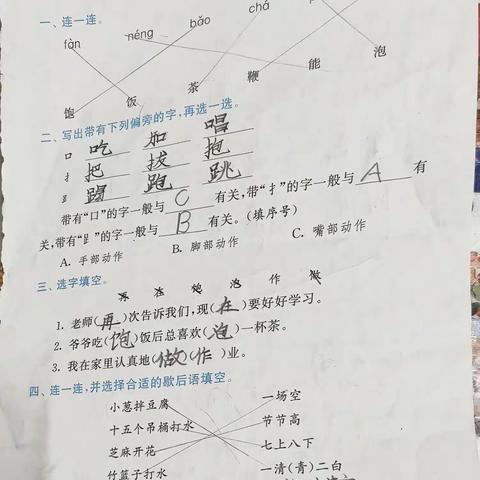 一、连一连。
fàn néng bǎo chá
饱 饭 茶 鞭 能 泡
二、写出带有下列偏旁的字,再选一选。
口 吃 加 唱
扌 把 拔 抱
⻊ 踢 跑 跳
带有“口”的字一般与 C 有关,带“扌”的字一般与 A 有
关,带有“⻊”的字一般与 B 有关。(填序号)
A. 手部动作 B. 脚部动作 C. 嘴部动作
三、选字填空。
再 在 饱 泡 作 做
1. 老师(再)次告诉我们,现(在)要好好学习。
2. 爷爷吃(饱)饭后总喜欢(泡)一杯茶。
3. 我在家里认真地(做)(作)业。
四、连一连,并选择合适的歇后语填空。
小葱拌豆腐 一场空
十五个吊桶打水 节节高
芝麻开花 七上八下
竹篮子打水 一清(青)二白